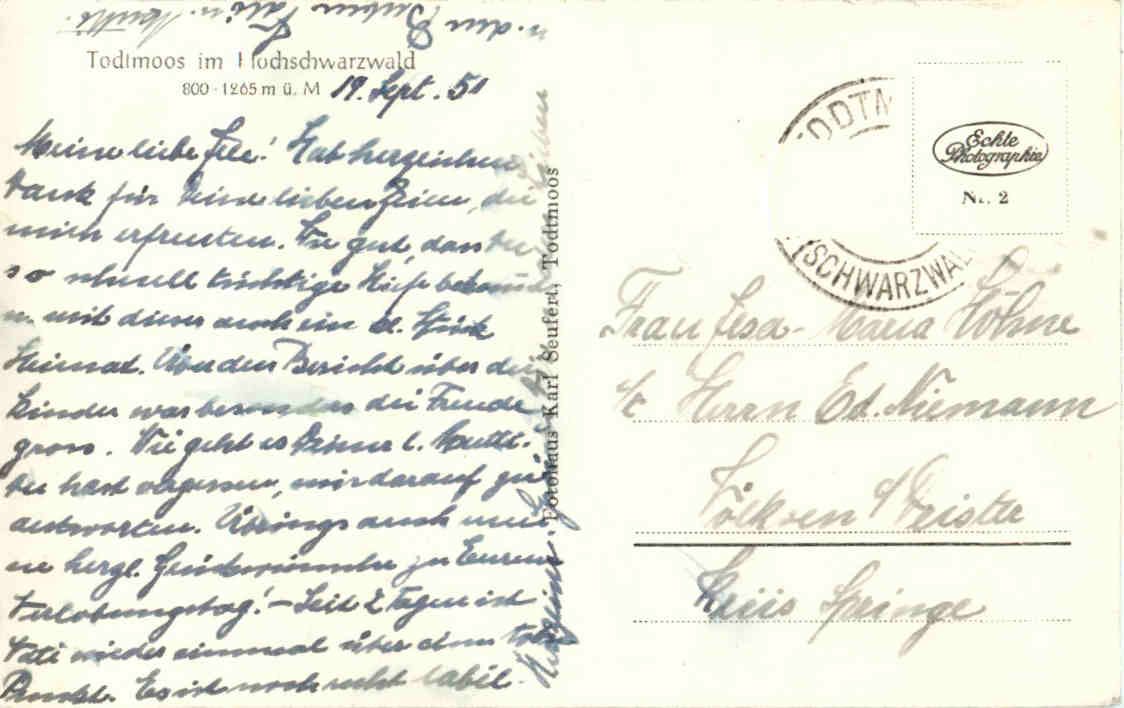 Todtmoos im Hochschwarzwald
800-1265 m ü. M
19. Sept. 51
Meine liebe Fele! Hab herzlichen
Dank für Deine lieben Zeilen, die
mich erfreuten. Wie gut, dass Du
so schnell tüchtige Hilfe bekamst
u. mit dieser auch ein kl. Stück
Heimat. Über den Bericht über die
Kinder war besonders die Freude
gross. Wie geht es Deiner l. Mutti.
Du hast vergessen, mir darauf zu
antworten. Übrings auch mei-
ne herzl. Glückwünsche zu Eurem
Verlobungstag! – Seit 2 Tagen ist
Vati wieder einmal über dem toten
Punkt. Es ist noch recht labil.
Herzlichst
lieben
u. den Buben Vati u. Mutti
Fotohaus Karl Seufert, Todtmoos
TODTM
SCHWARZWAL
Echte
Photographie
Nr. 2
Frau Gesa-Maria Höhne
c/o Herrn Ed. Niemann
Völksen a/Deister
Kreis Springe